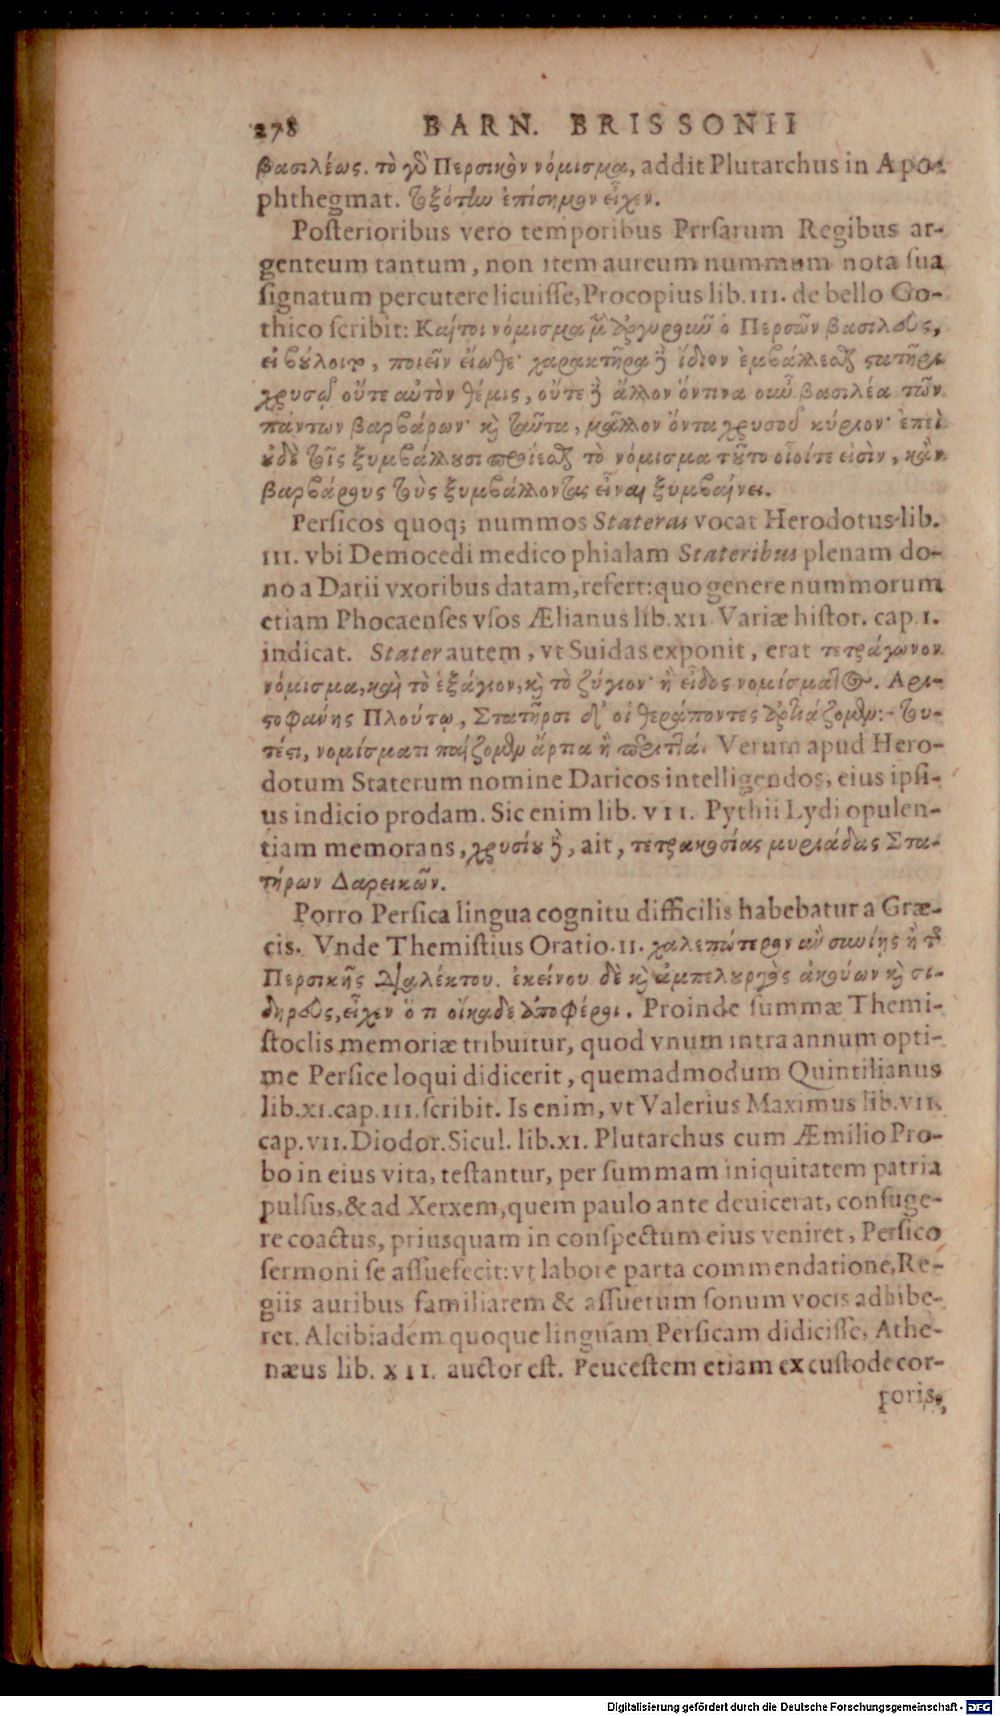 278 BARN. BRISSONII
βασιλέως. τὸ γὸ Περσικὸν νόμισμα, addit Plutarchus in Apo-
phthegmat. τοξότίω ἐπίσημον εἶχεν.
Posterioribus vero temporibus Prrsarum Regibus ar-
genteum tantum, non item aureum nummum nota sua
signatum percutere licuisse, Procopius lib. III. de bello Go-
thico scribit: Καίτοι νόμισμα μ ἀργυροιῶ ὁ Περσῶν βασιλεὺς,
εἰ βούλοιτο, ποιεῖν εἴωθε· χαρακτῆρα ἢ ἴδιον ἐμβάλλεσθαι στατῆρι
χρυσῷ οὔτε αὐτὸν θέμις, οὔτε ἢ ἄλλον ὅντινα οιῶ βασιλέα τῶν
πάντων βαρβάρων· καὶ ταῦτα, μᾶλλον ὄντα χρυσοῦ κύριον· ἐπεὶ
οὐδὲ τοῖς ξυμβάλλουσι προΐεσθαι τὸ νόμισμα τοῦτο οἷοίτε εἰσὶν, κἂν
βαρβάρους τοὺς ξυμβάλλοντας εἶναι ξυμβαίνει.
Persicos quoq; nummos Stateras vocat Herodotus lib.
III. vbi Democedi medico phialam Stateribus plenam do-
no a Darii vxoribus datam, refert: quo genere nummorum
etiam Phocaenses vsos Ælianus lib. XII. Variæ histor. cap. I.
indicat. Stater autem, vt Suidas exponit, erat τετράγωνον
νόμισμα, καὶ τὸ ἑξάγιον, καὶ τὸ ζύγιον· ἢ εἶδος νομίσματος. Αρι-
στοφάνης Πλούτῳ, Στατῆρσι δ' οἱ θεράποντες ἀρτιάζομεν:- του-
τέστι, νομίσματι παίζομεν ἄρτια ἢ περιττά. Verum apud Hero-
dotum Staterum nomine Daricos intelligendos, eius ipsi-
us indicio prodam. Sic enim lib. VII. Pythii Lydi opulen-
tiam memorans, χρυσίου ἢ, ait, τετρακοσίας μυριάδας Στα-
τήρων Δαρεικῶν.
Porro Persica lingua cognitu difficilis habebatur a Græ-
cis. Vnde Themistius Oratio. II. χαλεπώτερον αὖ σιωίης ἢ τῆς
Περσικῆς διαλέκτου. ἐκείνου δὲ καὶ ἀμπελουργὸς ἀκούων καὶ σι-
δηρεὺς, εἶχεν ὅ τι οἴκαδε ἀποφέροι. Proinde summæ Themi-
stoclis memoriæ tribuitur, quod vnum intra annum opti-
me Persice loqui didicerit, quemadmodum Quintilianus
lib. XI. cap. III. scribit. Is enim, vt Valerius Maximus lib. VII.
cap. VII. Diodor. Sicul. lib. XI. Plutarchus cum Æmilio Pro-
bo in eius vita, testantur, per summam iniquitatem patria
pulsus, & ad Xerxem, quem paulo ante deuicerat, confuge-
re coactus, priusquam in conspectum eius veniret, Persico
sermoni se assuefecit: vt labore parta commendatione, Re-
giis auribus familiarem & assuetum sonum vocis adhibe-
ret. Alcibiadem quoque linguam Persicam didicisse, Athe-
næus lib. XII. auctor est. Peucestem etiam ex custode cor-
poris,
Digitalisierung gefördert durch die Deutsche Forschungsgemeinschaft - DFG